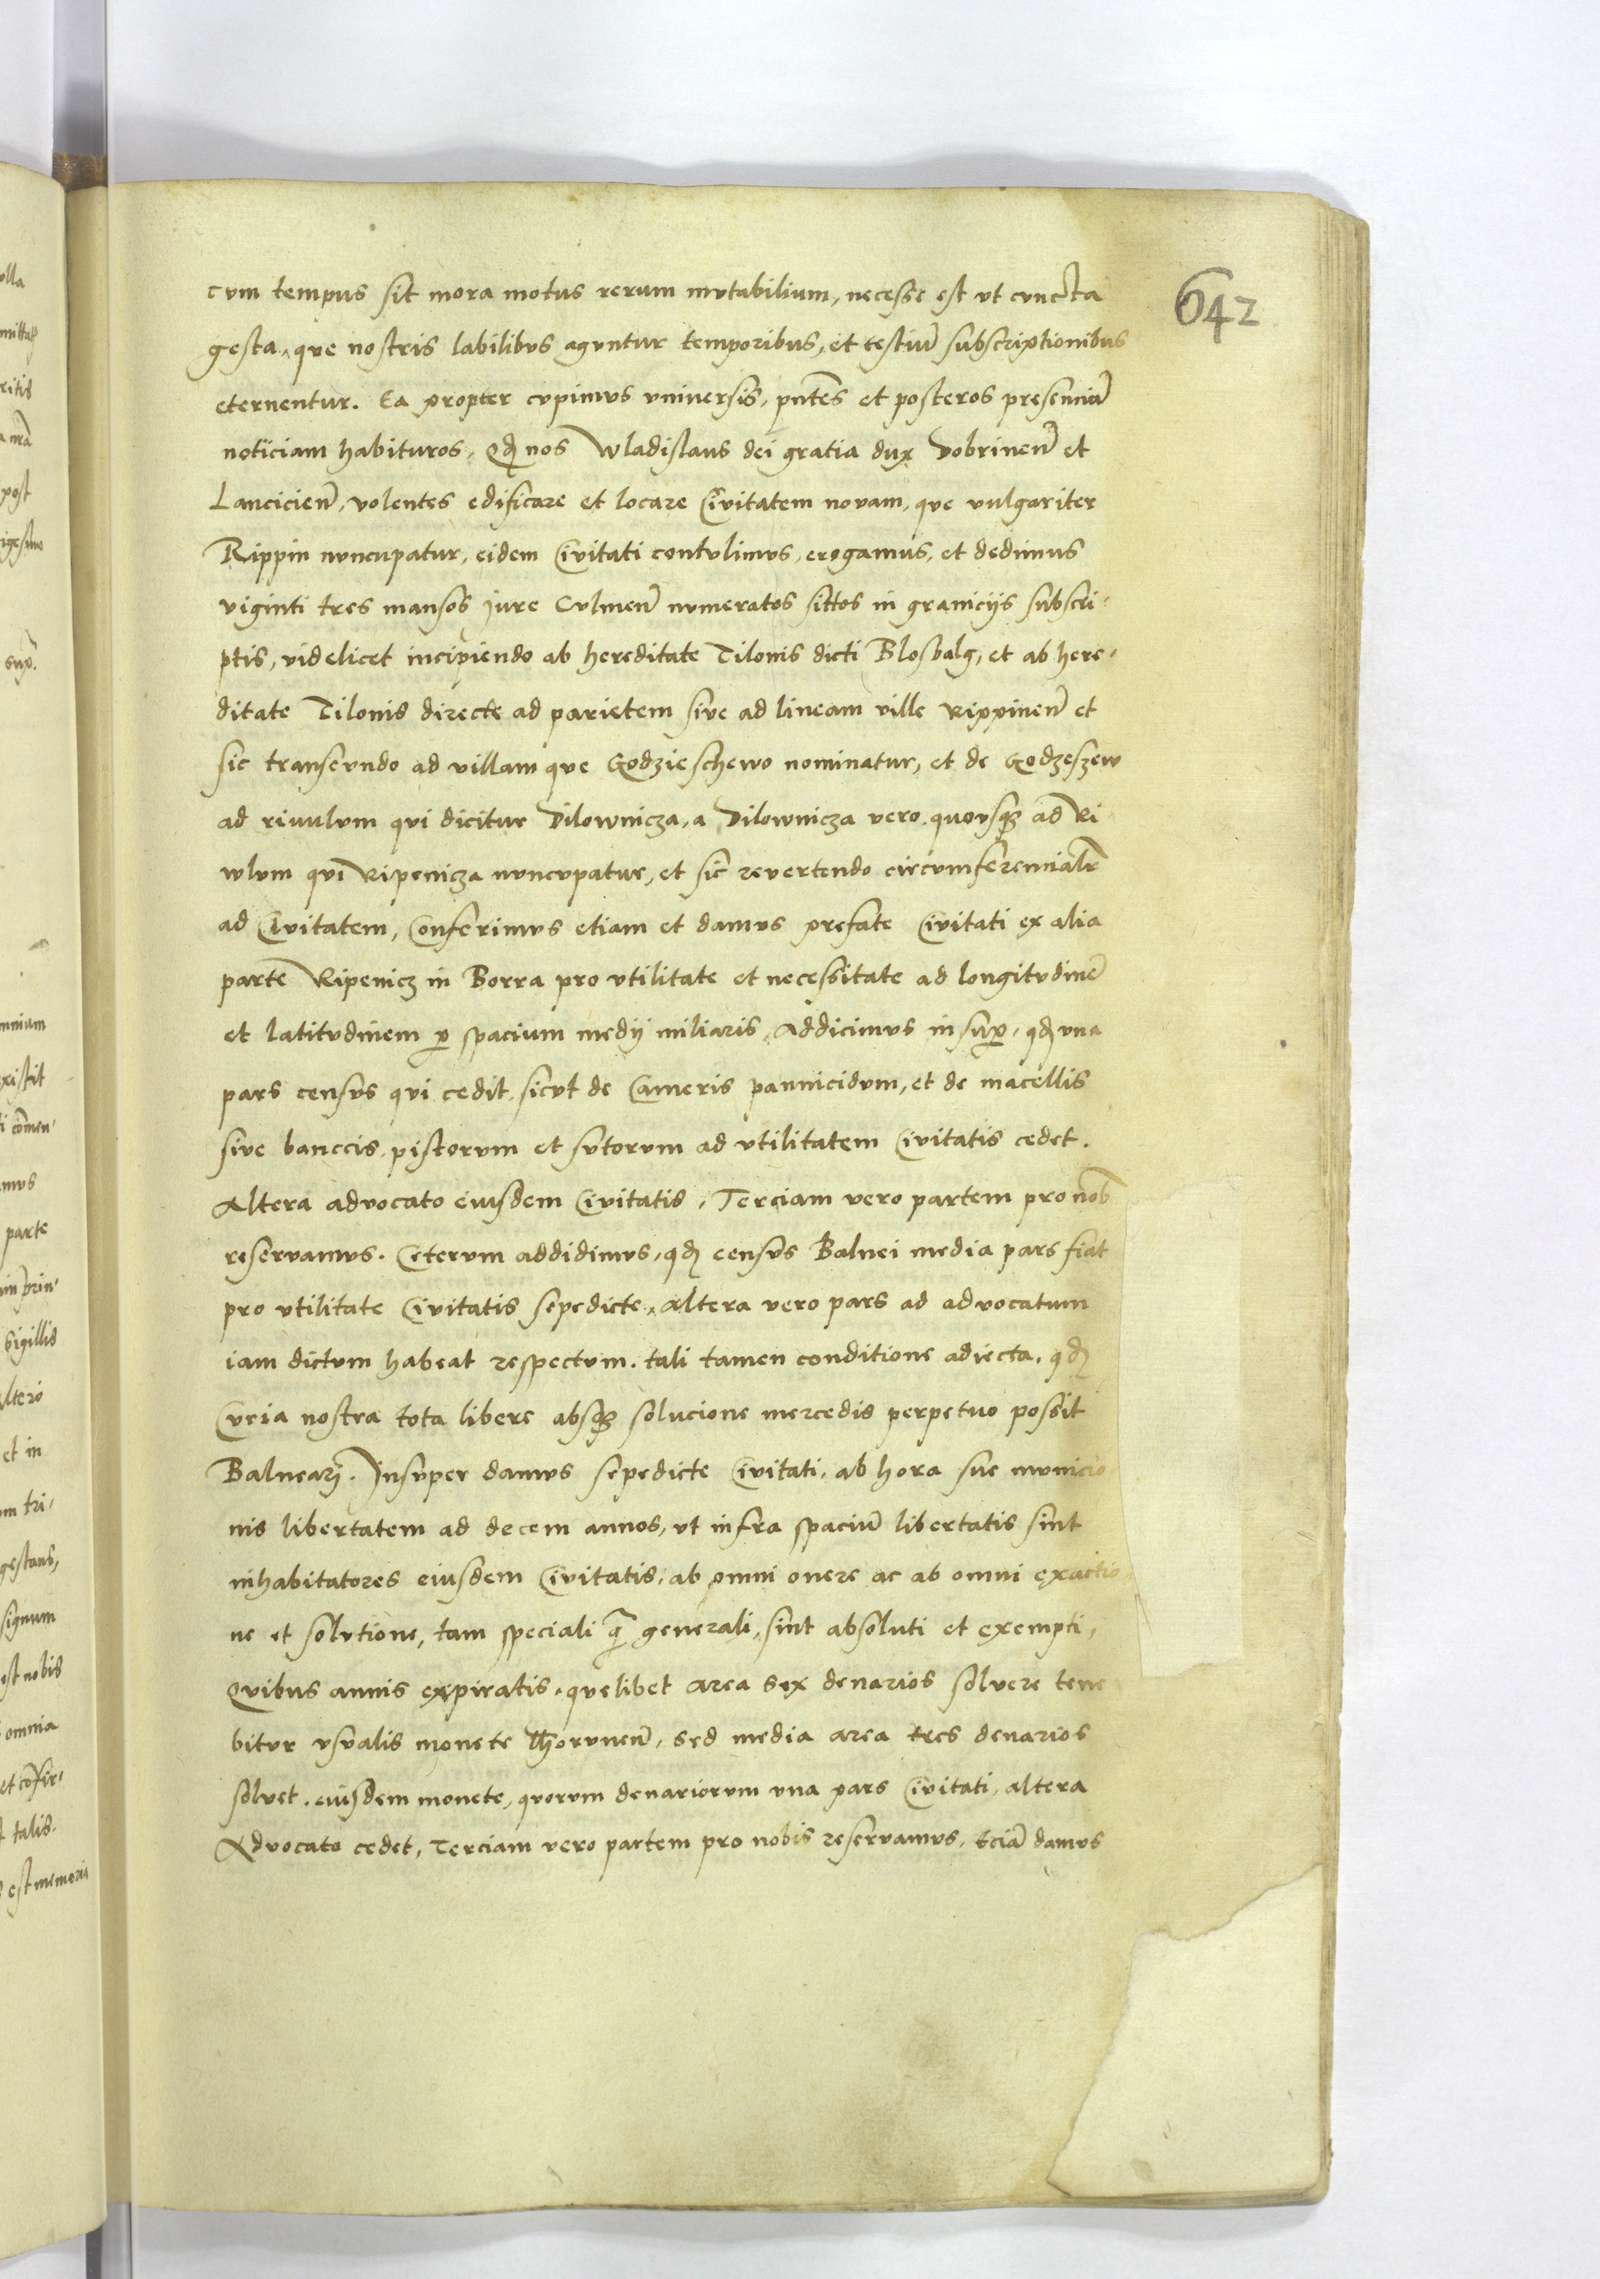 642
cum tempus sit mora motus rerum mutabilium, necesse est ut cuncta
gesta, que nostris labilibus aguntur temporibus, et testiū subscriptionibus
eternentur. Ea propter cupimus universis, pn̄tes et posteros presenciā
noticiam habituros, qđ nos Wladislaus dei gratia dux Dobrinen̄ et
Lancicien̄, volentes edificare et locare Civitatem novam, que vulgariter
Rippin nuncupatur, eidem Civitati contulimus, erogamus, et dedimus
viginti tres mansos Jure Culmen̄ numeratos sittos in granicijs subscri-
ptis, videlicet incipiendo ab hereditate Tilonis dicti Blosbalg, et ab here-
ditate Tilonis directe ad parietem sive ad lineam ville Rippinen̄ et
sic transeundo ad villam que Godzieschewo nominatur, et de Godzeszew
ad rivulum qui dicitur Dilownicza, a Dilownicza vero quousqȝ ad Ri
vulum qui Ripenicza nuncupatur, et sic revertendo circumferencialr̄
ad Civitatem, Conferimus etiam et damus prefate Civitati ex alia
parte Ripenicz in Borra pro utilitate et necessitate ad longitudinē
et latitudinem ꝑ spacium medij miliaris, Addicimus insuꝑ, qđ una
pars census qui cedit, sicut de Cameris pannicidum, et de macellis
sive banccis, pistorum et sutorum ad utilitatem Civitatis cedet.
Altera advocato eiusdem Civitatis, Terciam vero partem pro nob̄
reservamus. Ceterum addidimus, qđ census Balnei media pars fiat
pro utilitate Civitatis sepedicte, altera vero pars ad advocatum
iam dictum habeat respectum. tali tamen conditione adiecta, qđ
Curia nostra tota libere absqȝ solucione mercedis perpetuo possit
Balneari. Insuper damus sepedicte Civitati, ab hora sue municio
nis libertatem ad decem annos, ut infra spaciū libertatis sint
inhabitatores eiusdem Civitatis, ab omni onere ac ab omni exactio
ne et solutione, tam speciali q̄ generali, sint absoluti et exempti,
Quibus annis expiratis, quelibet area sex denarios solvere tene
bitur usualis monete Thorunen̄, sed media area tres denarios
solvet. eiusdem monete, quorum denariorum una pars Civitati, altera
Advocato cedet, Terciam vero partem pro nobis reservamus, eciā damus